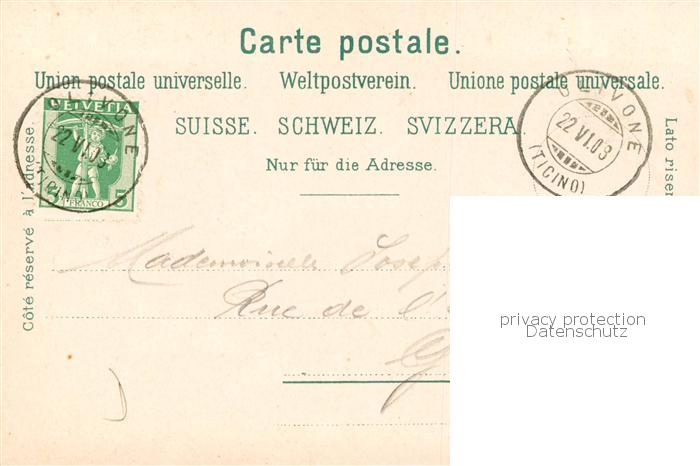 Carte postale.
Union postale universelle. Weltpostverein. Unione postale universale.
SUISSE. SCHWEIZ. SVIZZERA.
Nur für die Adresse.
Côté réservé à l'adresse.
Lato riser
HELVETIA
5
FRANCO
OLIVONE
22 VI.08
(TICINO)
OLIVONE
22 VI.08
(TICINO)
Mademoiselle Josep
Rue de l'
privacy protection
Datenschutz